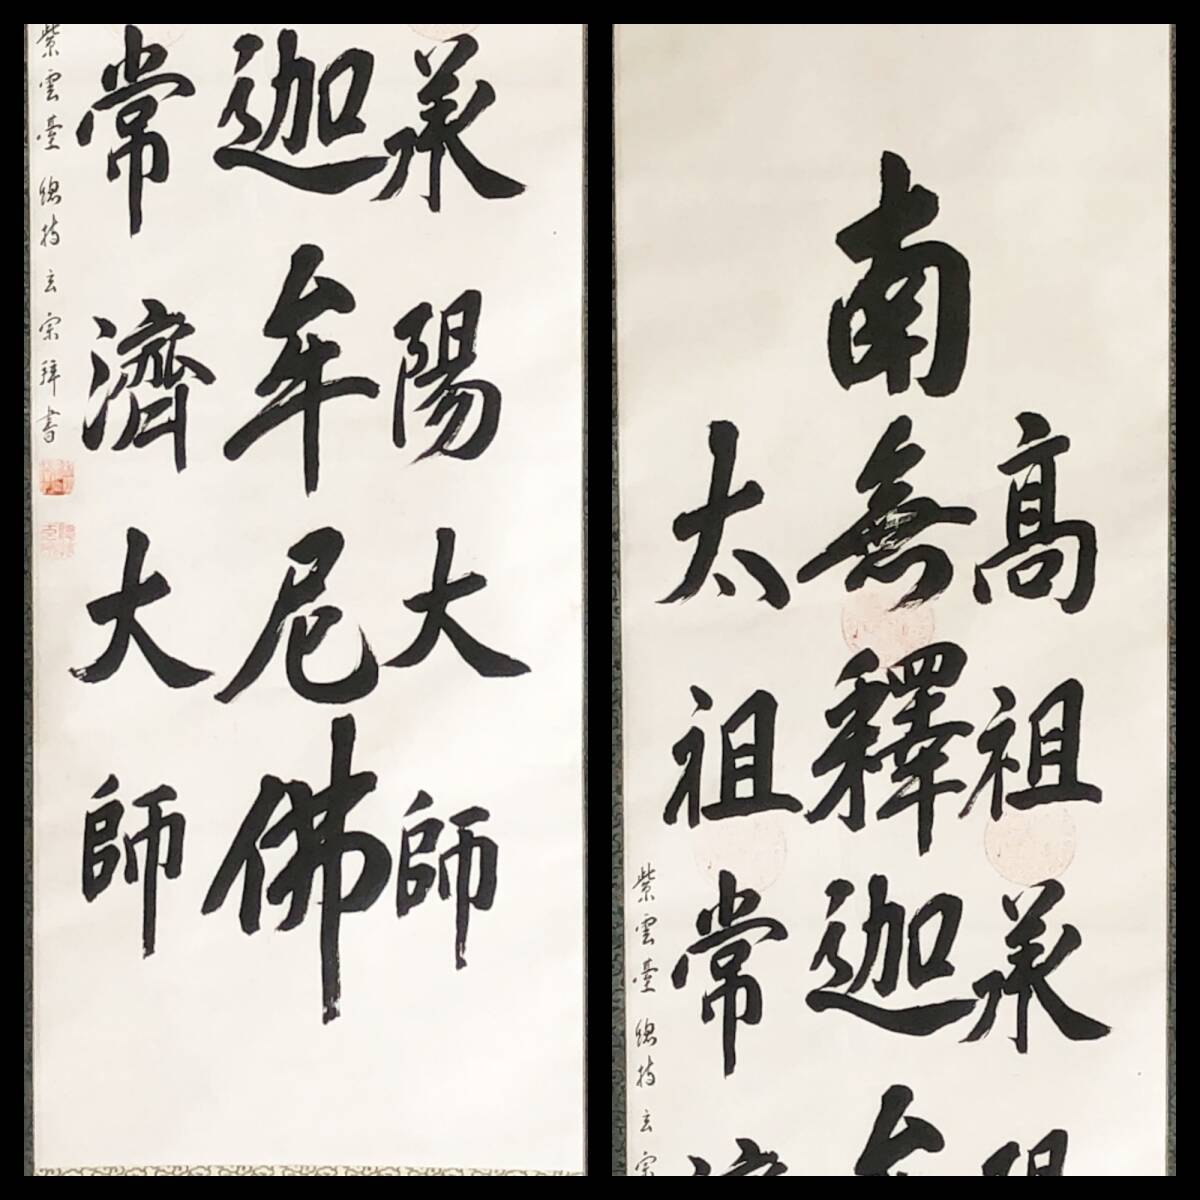 高祖承陽
南無釋迦牟
太祖常濟
紫雲臺 總持 玄宗
承陽大師
迦牟尼佛
常濟大師
紫雲臺 總持 玄宗拜書